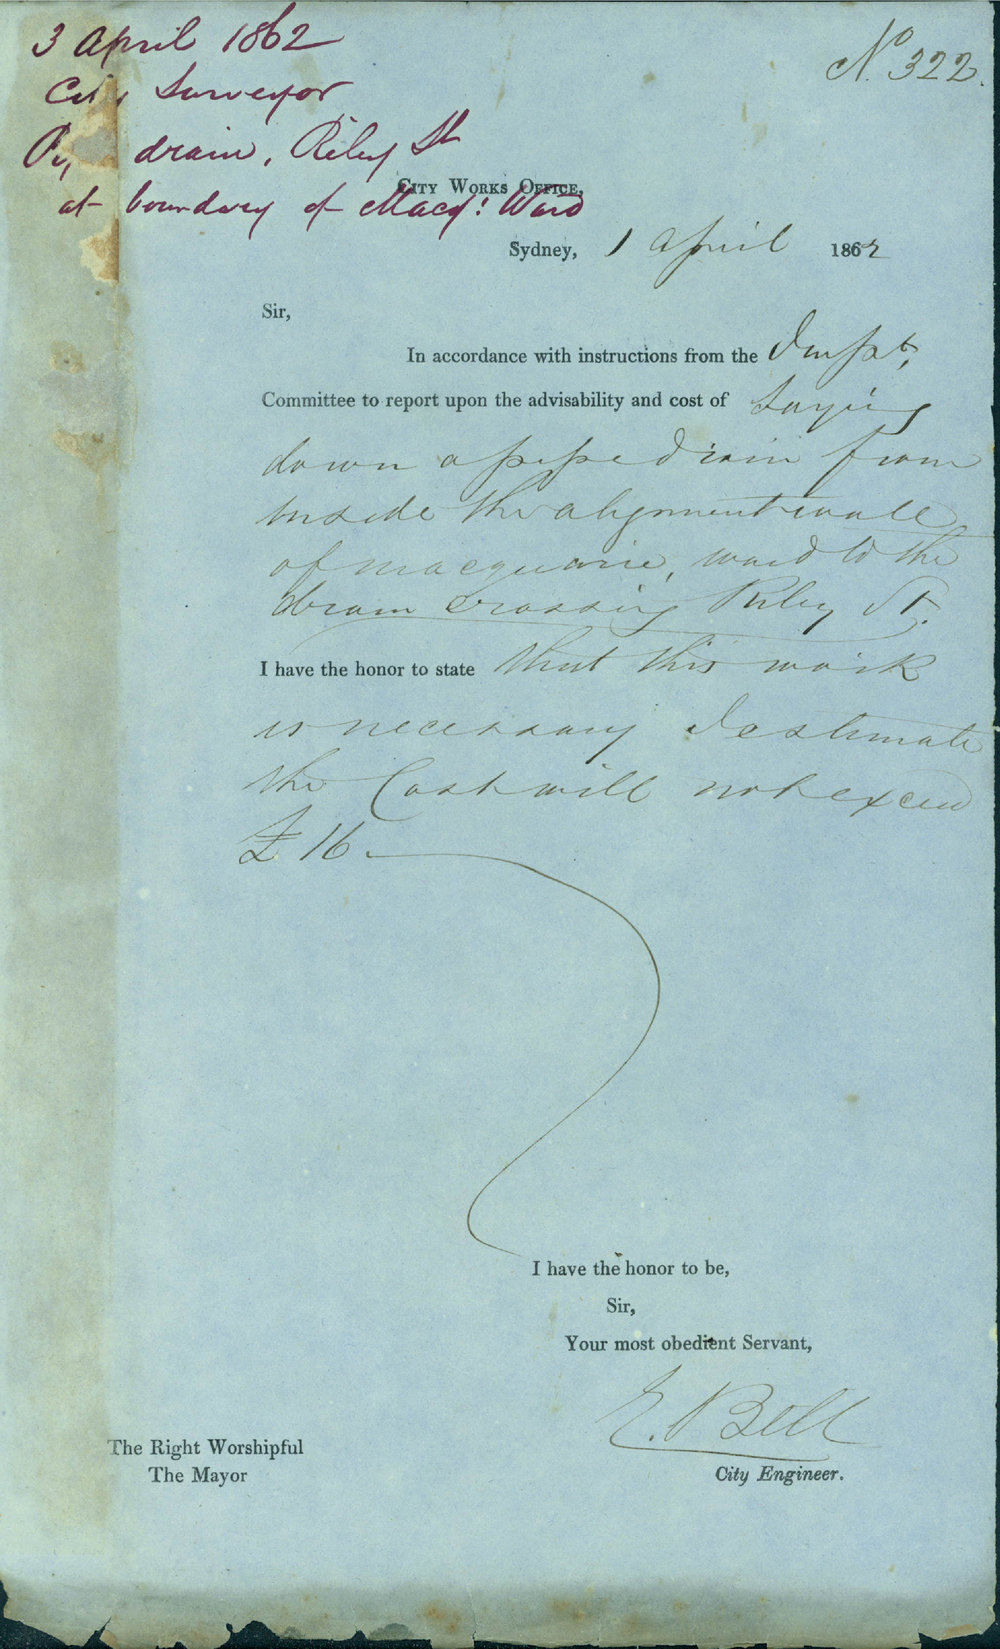 3 April 1862
No. 322.
City Surveyor
drain, Riley St
at boundary of Macq: Ward
CITY WORKS OFFICE,
Sydney, 1 April 1862
Sir,
In accordance with instructions from the Impt,
Committee to report upon the advisability and cost of Laying
down a pipe drain from
inside the alignment wall
of macquarie, ward to the
drain crossing Riley St.
I have the honor to state that this work
is necessary I estimate
the Cost will not exceed
£16.
I have the honor to be,
Sir,
Your most obedient Servant,
E. Bell
The Right Worshipful
The Mayor
City Engineer.